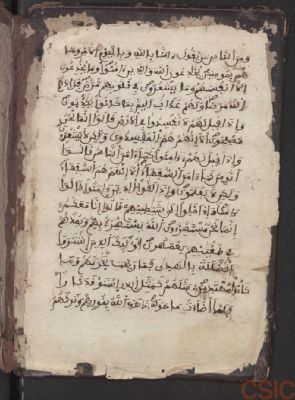 ومن الناس من يقول ءامنا بالله وباليوم الاخر وما
هم بمومنين يخدعون الله والذين ءامنوا وما يخدعون
الا انفسهم وما يشعرون في قلوبهم مرض فزادهم
الله مرضا ولهم عذاب اليم بما كانوا يكذبون
واذا قيل لهم لا تفسدوا في الارض قالوا انما نحن
مصلحون الا انهم هم المفسدون ولكن لا يشعرون
واذا قيل لهم ءامنوا كما ءامن الناس قالوا
انومن كما ءامن السفهاء الا انهم هم السفهاء
ولكن لا يعلمون واذا لقوا الذين ءامنوا قالوا
ءامنا واذا خلوا الى شيطينهم قالوا انا معكم
انما نحن مستهزءون الله يستهزئ بهم ويمدهم
في طغينهم يعمهون اوليك الذين اشتروا
الضللة بالهدى فما ربحت تجرتهم وما
كانوا مهتدين مثلهم كمثل الذي استوقد نارا
فلما اضاءت ما حوله ذهب الله بنورهم وتركهم
CSIC